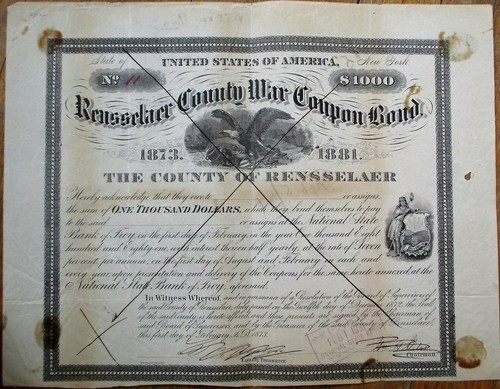 State of UNITED STATES OF AMERICA, New York
No. 11 $1000
Rensselaer County War Coupon Bond.
1873. 1881.
THE COUNTY OF RENSSELAER
Hereby acknowledge that they owe to or assigns,
the sum of ONE THOUSAND DOLLARS, which they bind themselves to pay
to the said or assigns at the National State
Bank of Troy, on the first day of February, in the year One thousand Eight
hundred and Eighty one, with interest thereon half yearly, at the rate of Seven
per cent, per annum, on the first day of August and February in each and
every year, upon presentation and delivery of the Coupons for the same hereto annexed, at the
National State Bank of Troy, aforesaid.
In Witness Whereof, and in pursuance of a Resolution of the Board of Supervisors of
the said County of Rensselaer, day of 1872, the Seal
of the said county is hereto affixed, and these presents are signed by the Chairman of
said Board of Supervisors, and by the Treasurer of the said County of Rensselaer,
this first day of February, A.D. 1873.
County Treasurer. Chairman.